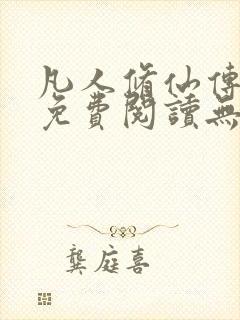 凡人脩仙傳
免費閱讀無
龔庭喜